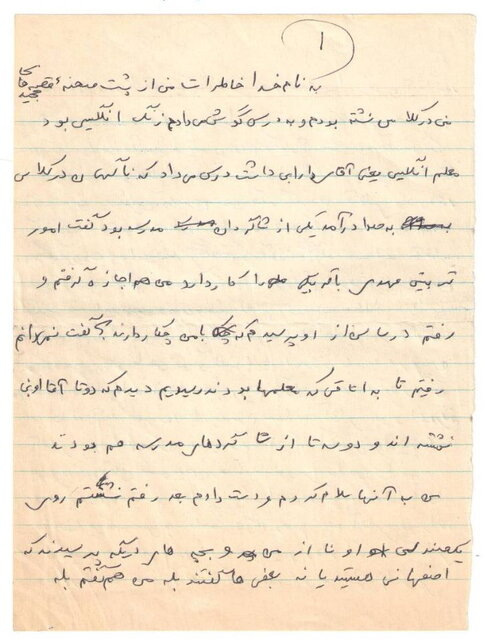 ۱
به نام خدا خاطرات من از پشت صحنهٔ قصه‌های مجید
من در کلاس نشسته بودم و به درس گوش می‌دادم زنگ انگلیس بود
معلم انگلیس یعنی آقای دارابی داشت درس می‌داد که ناگهان در کلاس
به صدا درآمد یکی از شاگردان مدرسه بود گفت امور
تربیتی مهدی باقربیک را کار دارد من هم اجازه گرفتم و
رفتم در سالن از او پرسیدم که با من چکار دارند گفت نمیدانم
رفتیم تا به اتاقی که معلمها بودند رسیدیم دیدم که دو تا آقا اونجا
نشسته اند و دو سه تا از شاگردهای مدرسه هم بودند
من به آنها سلام کردم و دست دادم بعد رفتم نشستم روی
یک صندلی اونا از من و بچه های دیگه پرسیدند که
اصفهانی هستید یا نه بعضی ها گفتند بله من هم گفتم بله